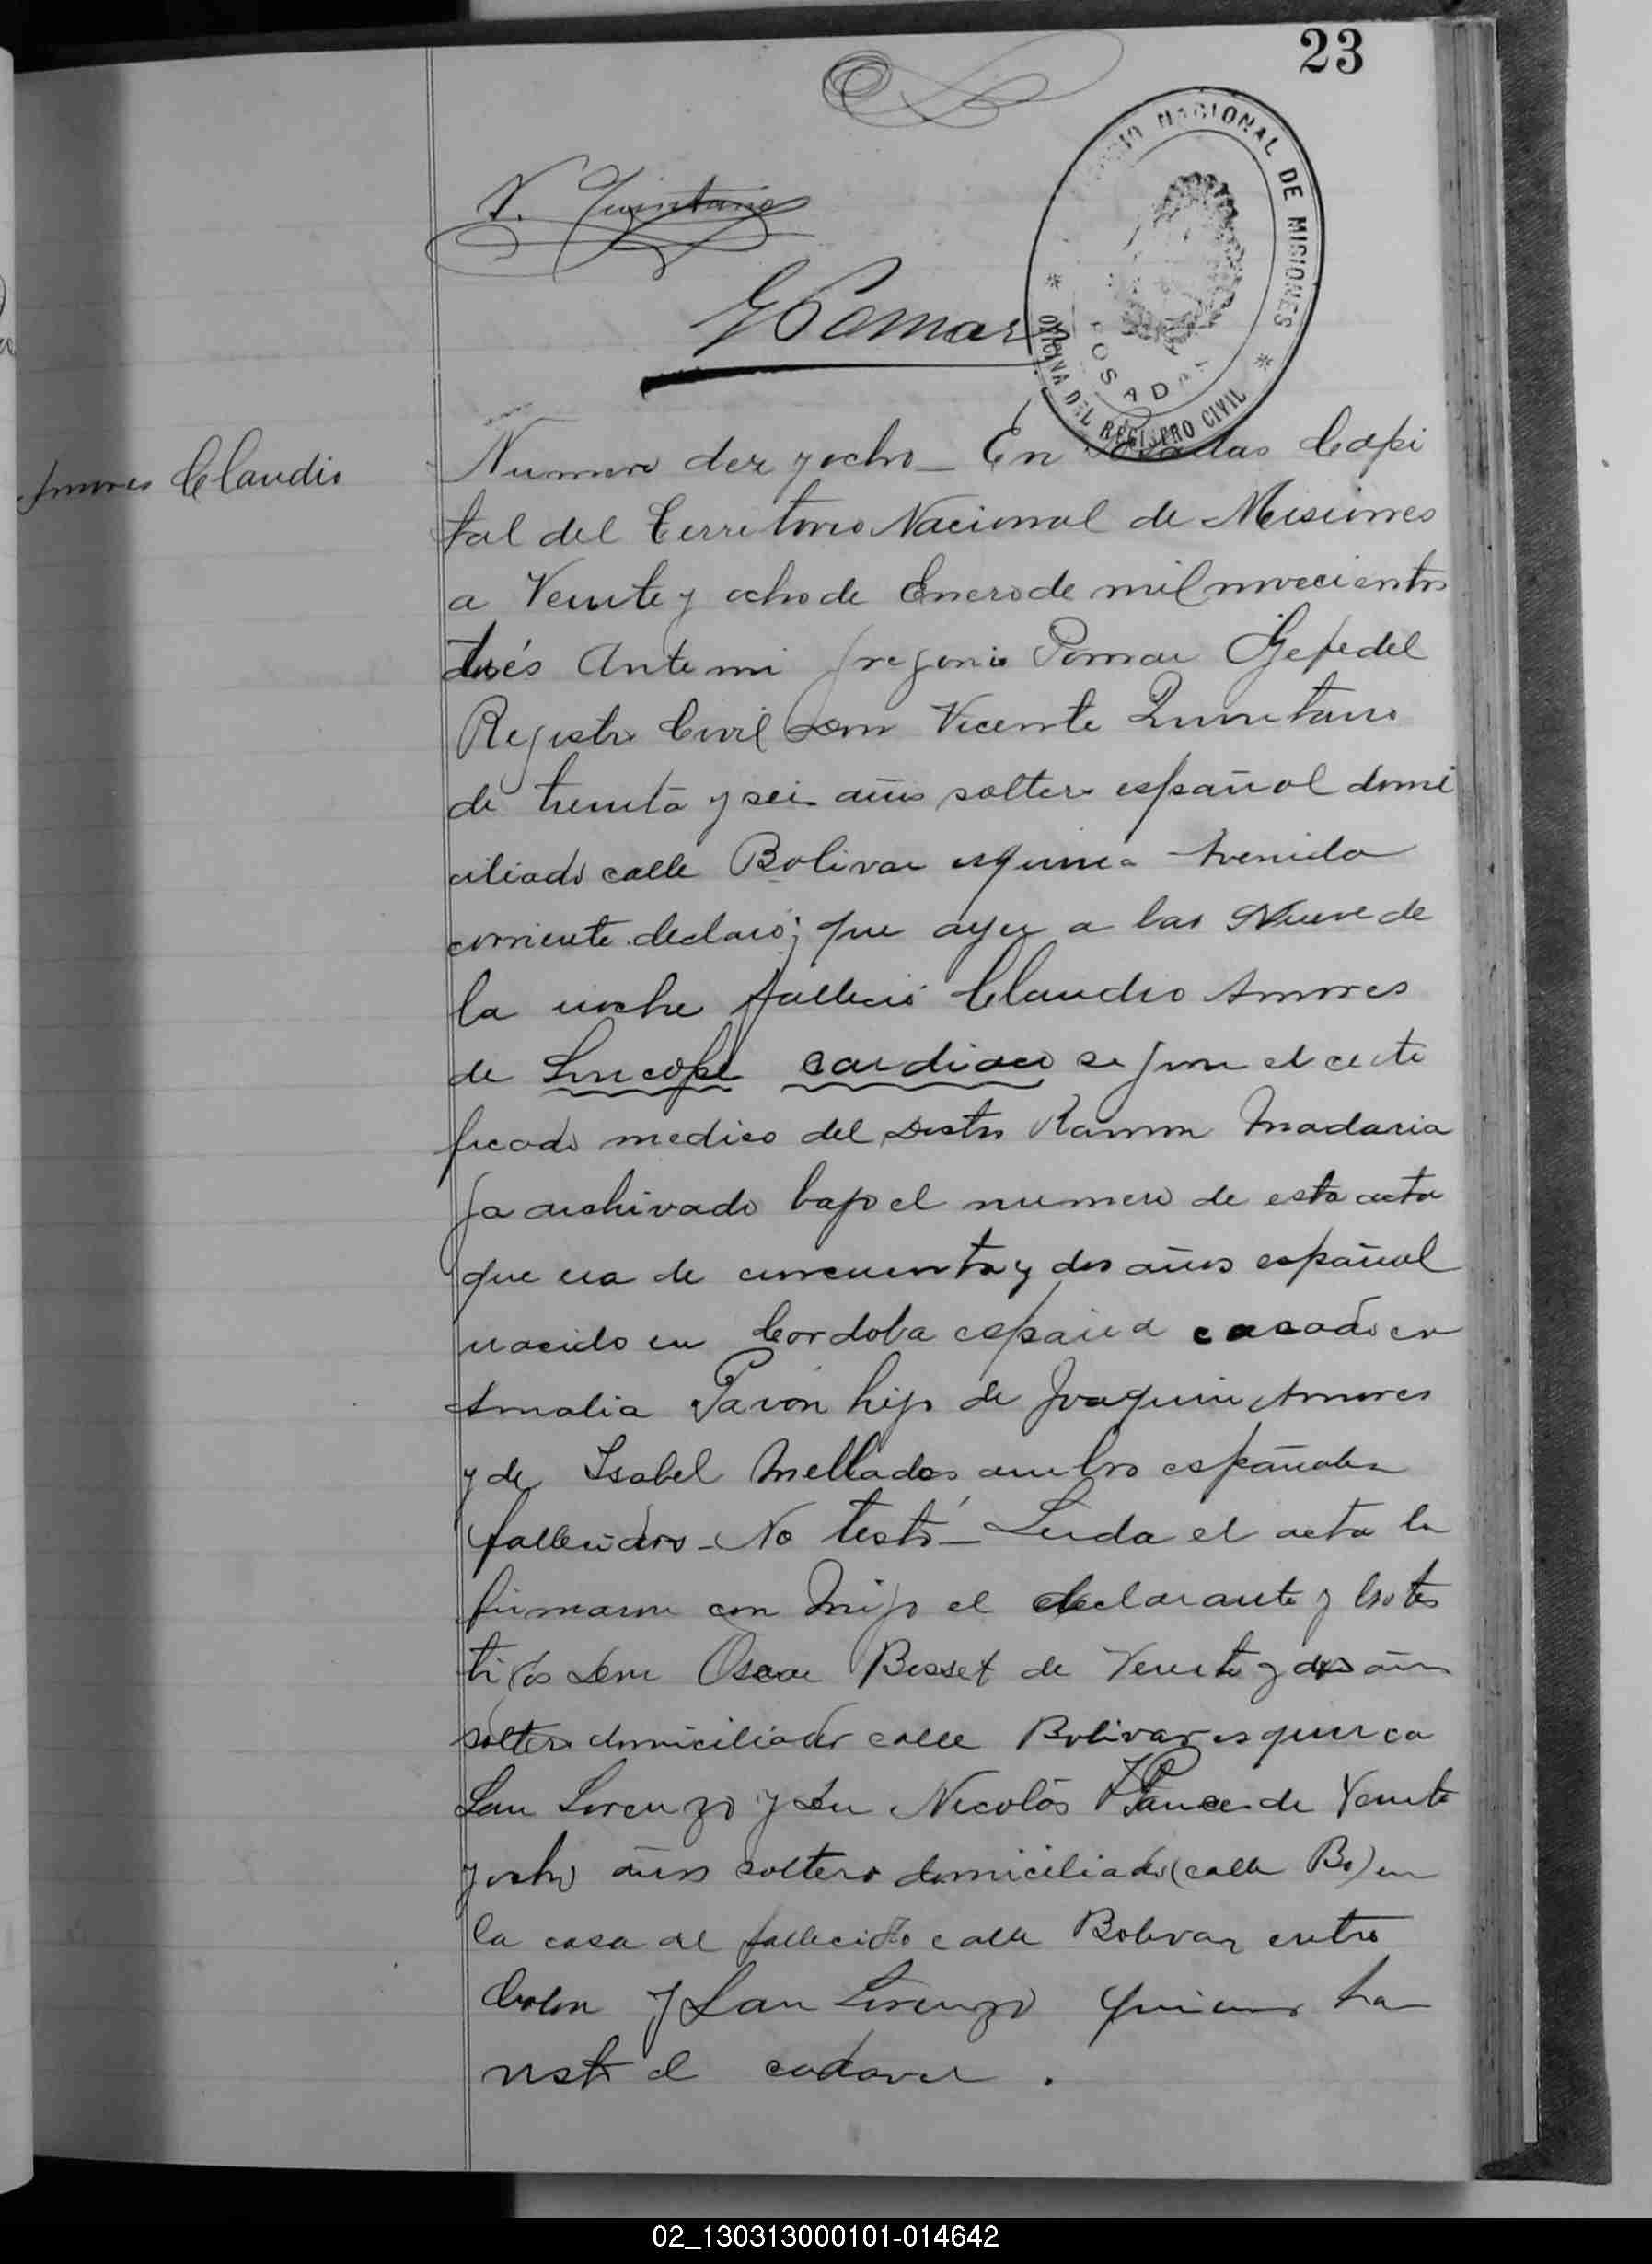 23
TERRITORIO NACIONAL DE MISIONES
POSADAS
OFICINA DEL REGISTRO CIVIL
V. Quintana
G Pomar
Amores Claudio
Numero diez y ocho_ En Posadas Capi
tal del Territorio Nacional de Misiones
a Veinte y ocho de Enero de mil novecientos
trés Ante mi Gregorio Pomar Gefe del
Registro Civil Don Vicente Quintana
de treinta y seis años soltero español domi
ciliado calle Bolivar esquina Avenida
corriente declaró; que ayer a las Nueve de
la noche fallecio Claudio Amores
de Sincope cardiaco segun el certi
ficado medico del Doctor Ramon Madaria
ga archivado bajo el numero de esta acta
que era de cincuenta y dos años español
nacido en Cordoba españa casado con
Amalia Pavón hijo de Joaquin Amores
y de Isabel Mellados ambos españoles
fallecidos_ No testó_ Leida el acta la
firmaron con migo el declarante y los tes
tigos Don Oscar Bosset de Veinte y dos años
soltero domiciliado calle Bolivar esquina
San Lorenzo y Don Nicolás de Veinte
y ocho años soltero domiciliado (calle Bo) en
la casa del fallecido calle Bolivar entre
Colon y San Lorenzo quienes han
visto el cadaver.
02_130313000101-014642